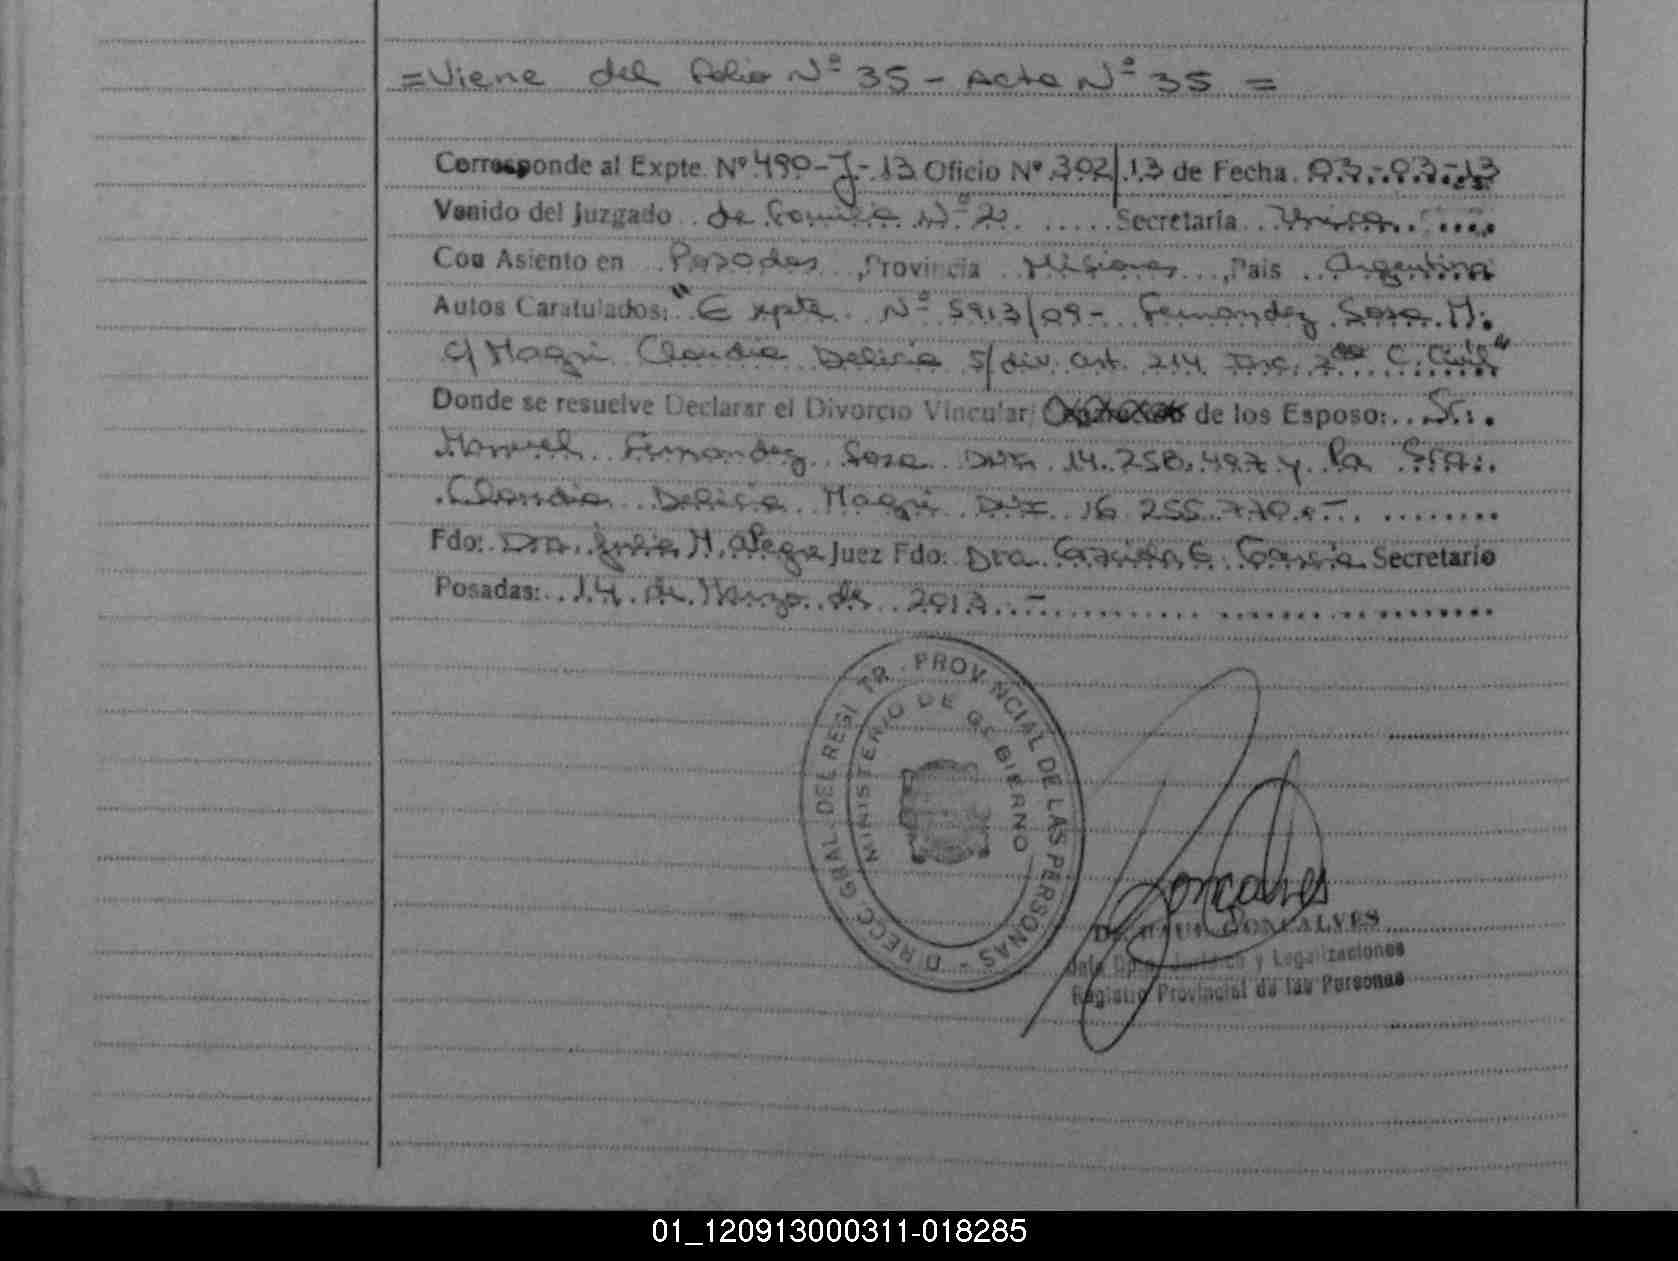 =Viene del folio Nº 35 - Acta Nº 35 =
Corresponde al Expte. Nº 490-J-13 Oficio Nº 302/13 de Fecha 03-03-13
Venido del Juzgado de Familia Nº 2 Secretaría Unica
Con Asiento en Posadas, Provincia Misiones, País Argentina
Autos Caratulados: "Expte Nº 5913/09- Fernandez Sosa M.
c/ Magri Claudia Delicia s/ div. art. 214 Inc. 2do C. Civil"
Donde se resuelve Declarar el Divorcio Vincular de los Esposo: Sr.
Manuel Fernandez Sosa DNI 14.258.497 y la Sra.
Claudia Delicia Magri DNI 16.255.770.-
Fdo: Dra. Julia M. Alegre Juez Fdo: Dra Graciela E. Garcia Secretario
Posadas: 14 de Marzo de 2013.-
DIRECC. GRAL. DEL REGISTR. PROVINCIAL DE LAS PERSONAS -
MINISTERIO DE GOBIERNO
Goncalves
GONCALVES
Jefe Dpto. Jurídico y Legalizaciones
Registro Provincial de las Personas
01_120913000311-018285